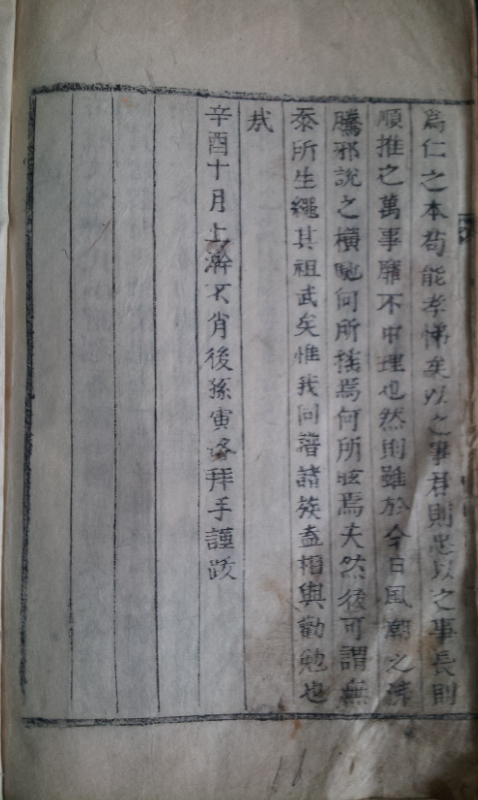 爲仁之本苟能孝悌矣以之事君則忠以之事長則
順推之萬事靡不中理也然則雖於今日風潮之沸
騰邪說之橫馳何所搖焉何所眩焉夫然後可謂無
忝所生繩其祖武矣惟我同譜諸族盍相與勸勉也
哉
辛酉十月上澣不肖後孫寅洛拜手謹跋